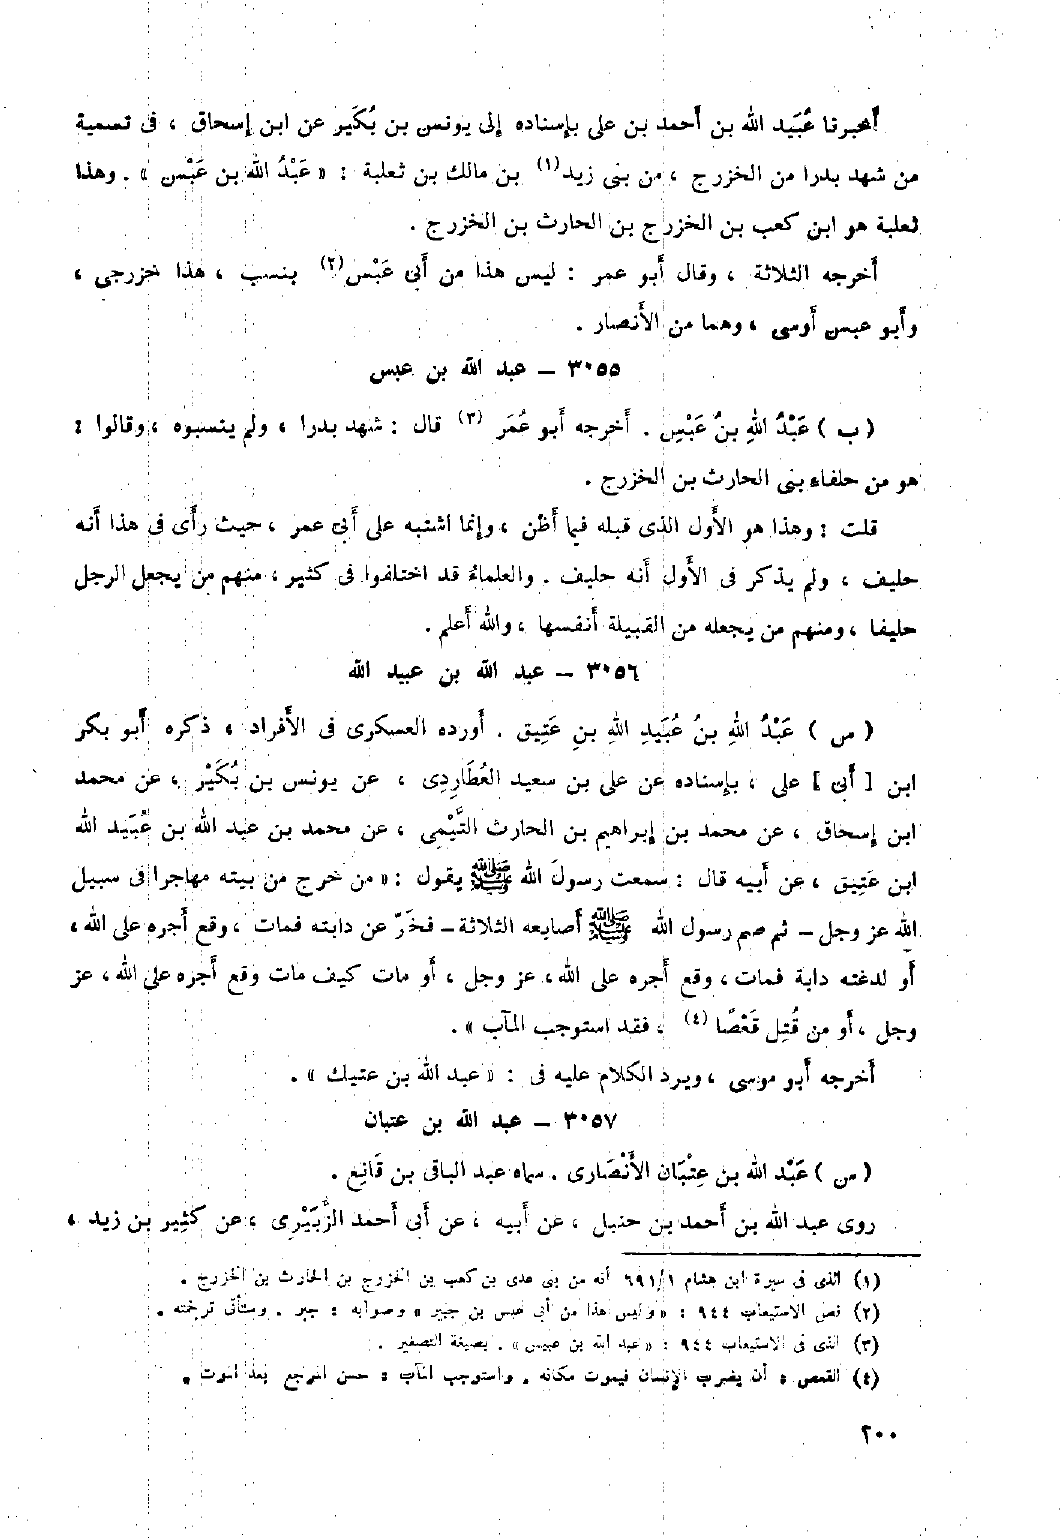 أخبرنا عُبَيد الله بن أحمد بن على بإسناده إلى يونس بن بُكَير عن ابن إسحاق ، فى تسمية
من شهد بدرا من الخزرج ، من بنى زيد(١) بن مالك بن ثعلبة : « عَبْدُ الله بن عَبْس » . وهذا
ثعلبة هو ابن كعب بن الخزرج بن الحارث بن الخزرج .
أخرجه الثلاثة ، وقال أبو عمر : ليس هذا من أبى عَبْس(٢) بنسب ، هذا خزرجى ،
وأبو عبس أوسى ، وهما من الأنصار .
٣٠٥٥ – عبد الله بن عبس
( ب ) عَبْدُ اللهِ بنُ عَبْسٍ . أخرجه أبو عُمَر (٣) قال : شهد بدرا ، ولم ينسبوه ، وقالوا :
هو من حلفاء بنى الحارث بن الخزرج .
قلت : وهذا هو الأول الذى قبله فيما أظن ، وإنما اشتبه على أبى عمر ، حيث رأى فى هذا أنه
حليف ، ولم يذكر فى الأول أنه حليف . والعلماءُ قد اختلفوا فى كثير ، منهم من يجعل الرجل
حليفا ، ومنهم من يجعله من القبيلة أنفسها ، والله أعلم .
٣٠٥٦ – عبد الله بن عبيد الله
( س ) عَبْدُ اللهِ بنُ عُبَيدِ اللهِ بنِ عَتِيق . أورده العسكرى فى الأفراد ، ذكره أبو بكر
ابن [ أبى ] على ، بإسناده عن على بن سعيد العُطَارِدِى ، عن يونس بن بُكَيْر ، عن محمد
ابن إسحاق ، عن محمد بن إبراهيم بن الحارث التَّيْمِى ، عن محمد بن عبد الله بن عُبَيد الله
ابن عَتِيق ، عن أبيه قال : سمعت رسولَ الله ﷺ يقول : « من خرج من بيته مهاجرا فى سبيل
الله عز وجل – ثم ضم رسول الله ﷺ أصابعه الثلاثة – فخَرّ عن دابته فمات ، وقع أجره على الله ،
أو لدغته دابة فمات ، وقع أجره على الله ، عز وجل ، أو مات كيف مات وقع أجره على الله ، عز
وجل ، أو من قُتِل قَعْصًا (٤) ، فقد استوجب المآب » .
أخرجه أبو موسى ، ويرد الكلام عليه فى : « عبد الله بن عتيك » .
٣٠٥٧ – عبد الله بن عتبان
( س ) عَبْد الله بن عِتْبَان الأَنْصَارى . سماه عبد الباقى بن قَانِع .
روى عبد الله بن أحمد بن حنبل ، عن أبيه ، عن أبى أحمد الزُّبَيْرِى ، عن كثِير بن زيد ،
(١) الذى فى سيرة ابن هشام ٦٩١/١ أنه من بنى عدى بن كعب بن الخزرج بن الحارث بن الخزرج .
(٢) نص الاستيعاب ٩٤٤ : « وليس هذا من أبى عبس بن جبير » وصوابه : جبر . وستأتى ترجمته .
(٣) الذى فى الاستيعاب ٩٤٤ : « عبد الله بن عبيس » . بصيغة التصغير .
(٤) القعص : أن يضرب الإنسان فيموت مكانه . واستوجب المآب : حسن المرجع بعد الموت .
٢٠٠